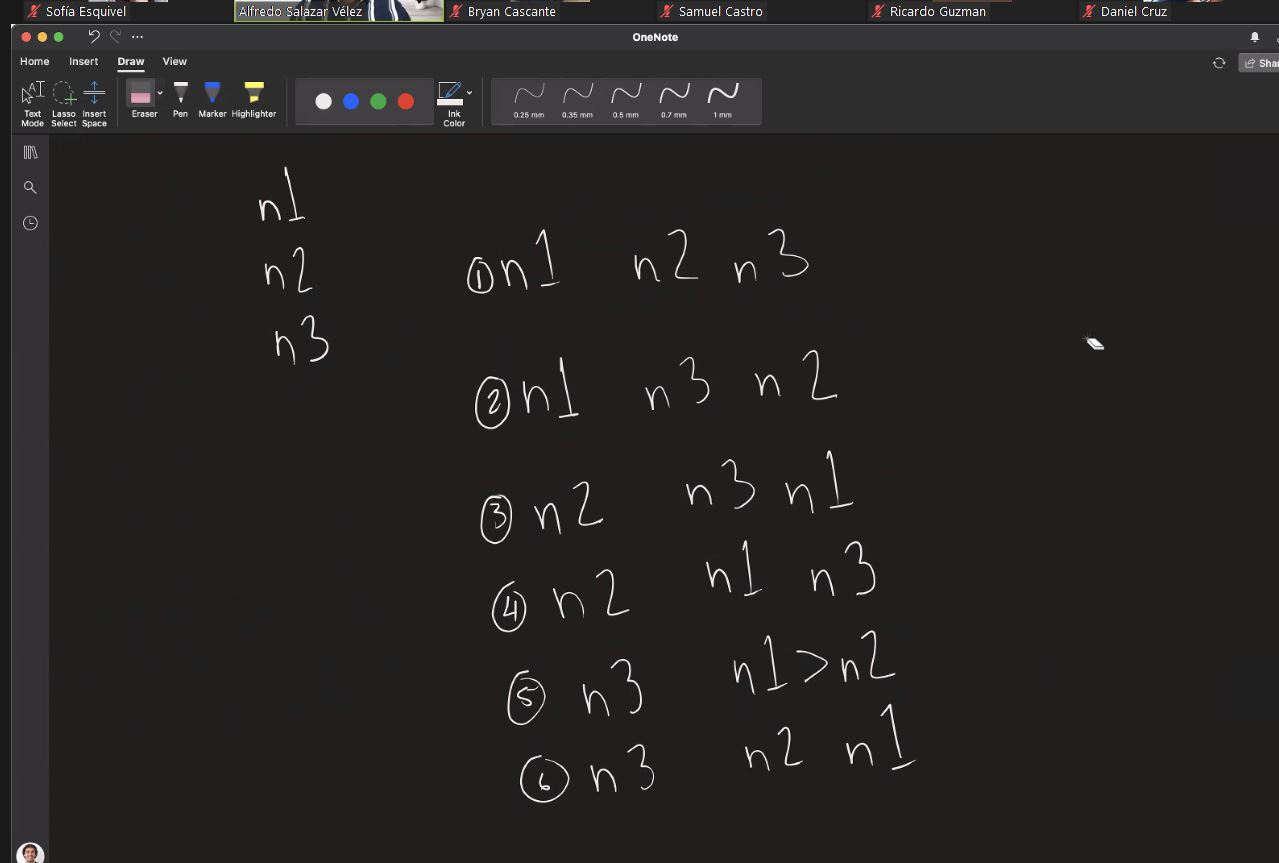 Sofía Esquivel Alfredo Salazar Vélez Bryan Cascante Samuel Castro Ricardo Guzman Daniel Cruz
OneNote
Home Insert Draw View
Text Mode Lasso Select Insert Space Eraser Pen Marker Highlighter Ink Color 0.25 mm 0.35 mm 0.5 mm 0.7 mm 1 mm
n1
n2
n3
① n1 n2 n3
② n1 n3 n2
③ n2 n3 n1
④ n2 n1 n3
⑤ n3 n1 > n2
⑥ n3 n2 n1